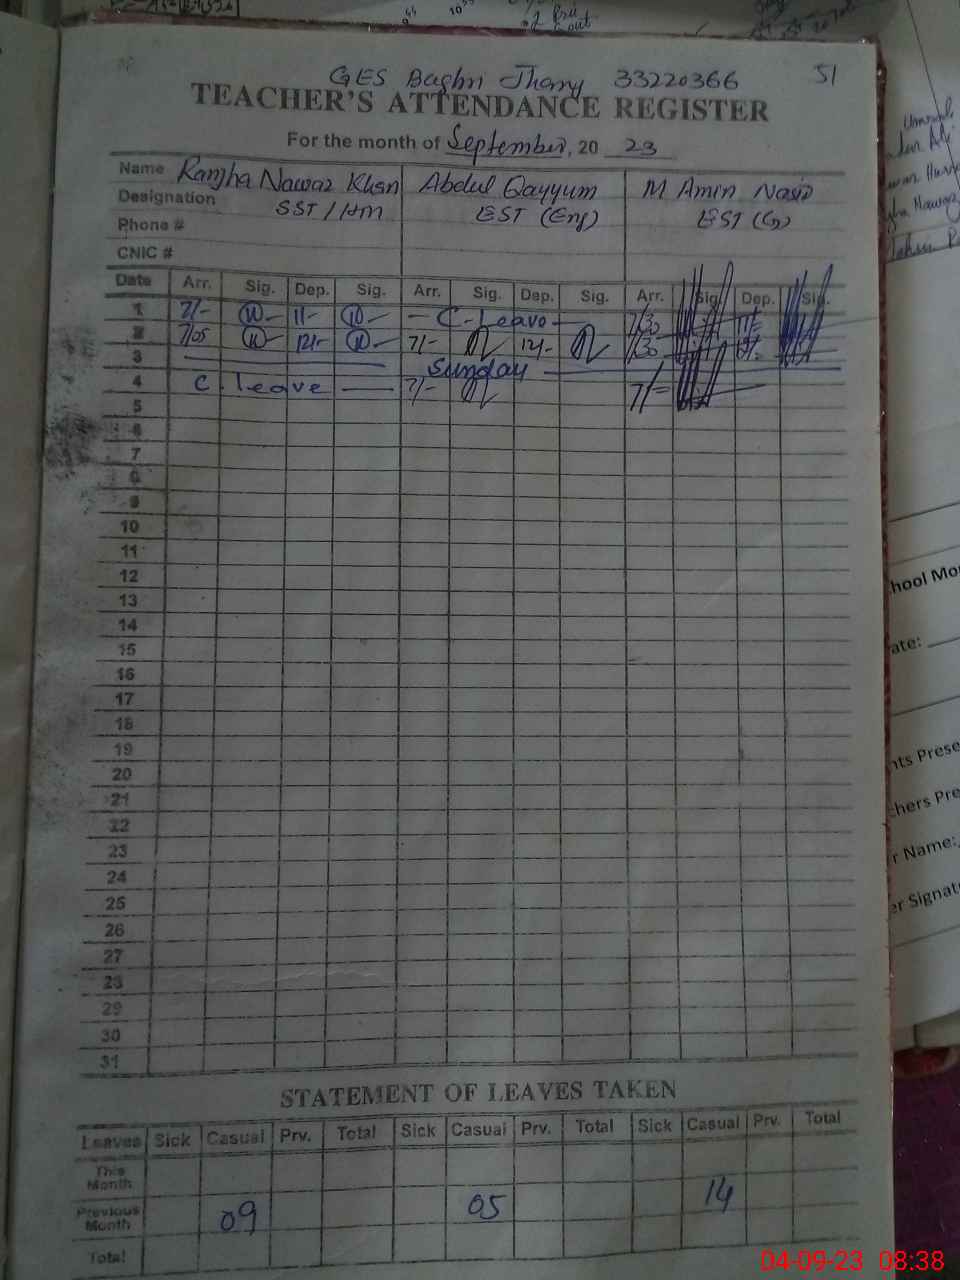 GES Baghn Jhang 33220366 51
TEACHER'S ATTENDANCE REGISTER
For the month of September, 20 23
Name Ranjha Nawaz Khan Abdul Qayyum M Amin Nasir
Designation SST/HM EST (Eng) EST (G)
Phone #
CNIC #
Date Arr. Sig. Dep. Sig. Arr. Sig. Dep. Sig. Arr. Sig. Dep. Sig.
1 7/- 11- - C-Leave - 7/30 11/-
2 7/05 12/- 7/- 12/- 7/30
3 Sunday
4 C. leave 7/- 7/-
5
6
7
8
9
10
11
12
13
14
15
16
17
18
19
20
21
22
23
24
25
26
27
28
29
30
31
STATEMENT OF LEAVES TAKEN
Leaves Sick Casual Prv. Total Sick Casual Prv. Total Sick Casual Prv. Total
This Month
Previous Month 09 05 14
Total
hool Mo
ate:
nts Prese
chers Pre
r Name:
er Signat
04-09-23 08:38